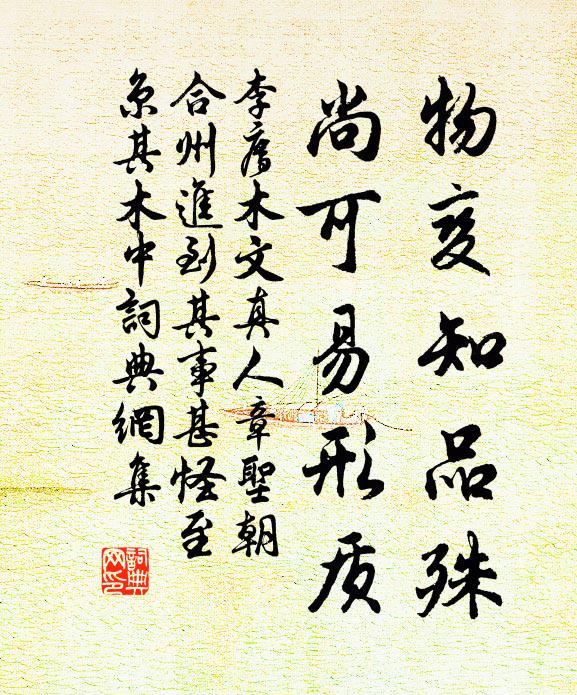 物变知品殊
尚可易形质
李膺木文真人章聖朝
合州進到其事甚怪至
京其木中詞典網集
詞典
网印